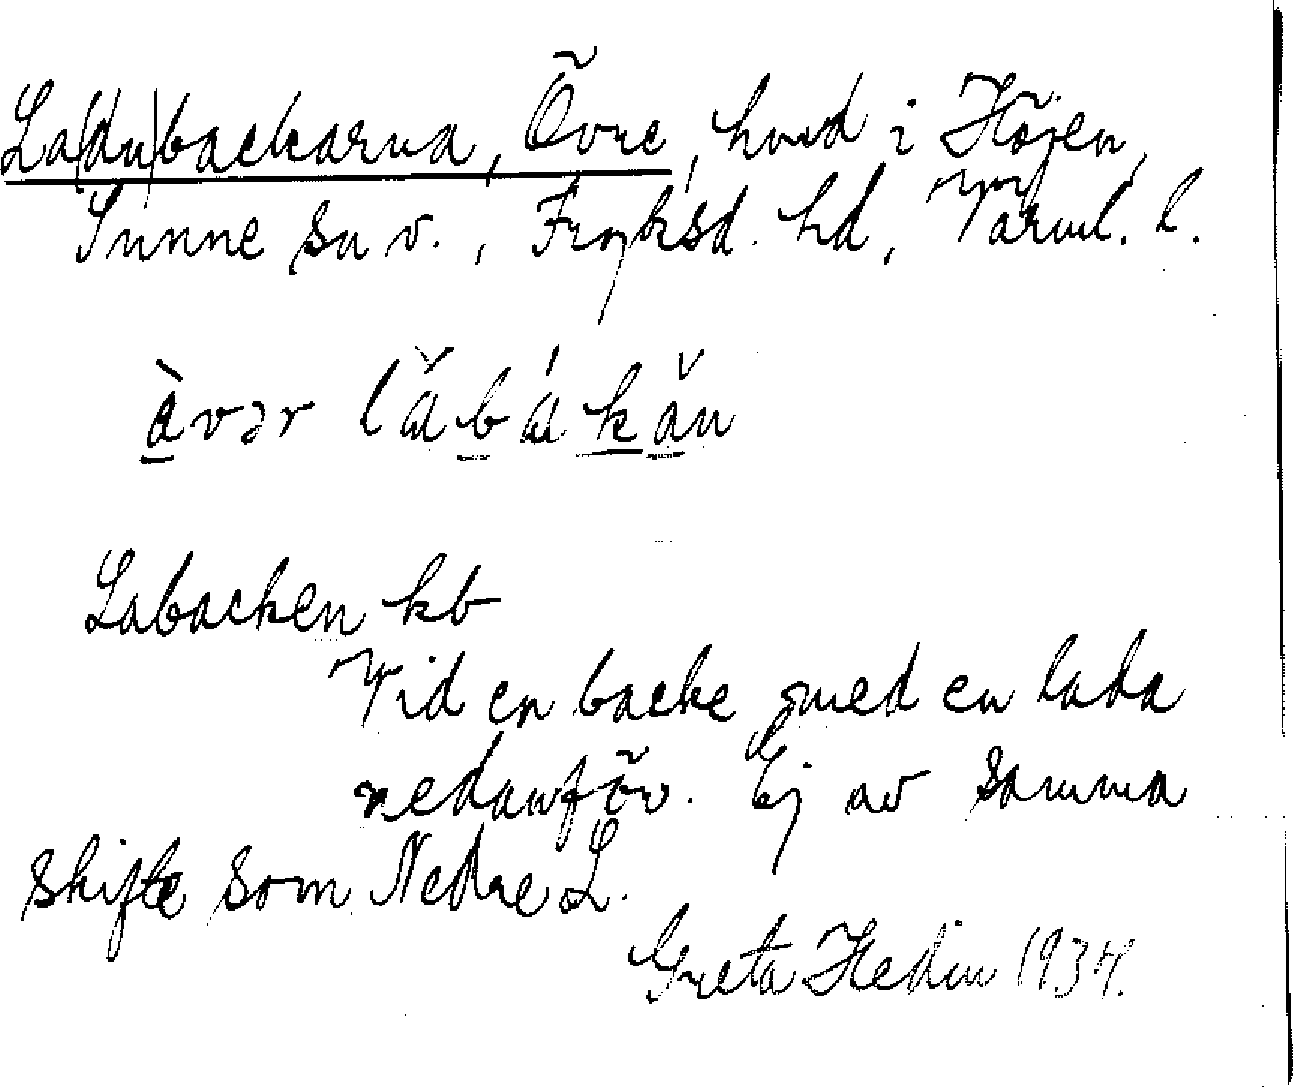 La(du)backarna, Övre, hmd i Höjen,
Sunne sn v., Fryksd. hd, Värml. l.
àvər lǎbákǎn
Labacken kb
Vid en backe med en lada
nedanför. Ej av samma
skifte som Nedre L.
Greta Hedin 1934.